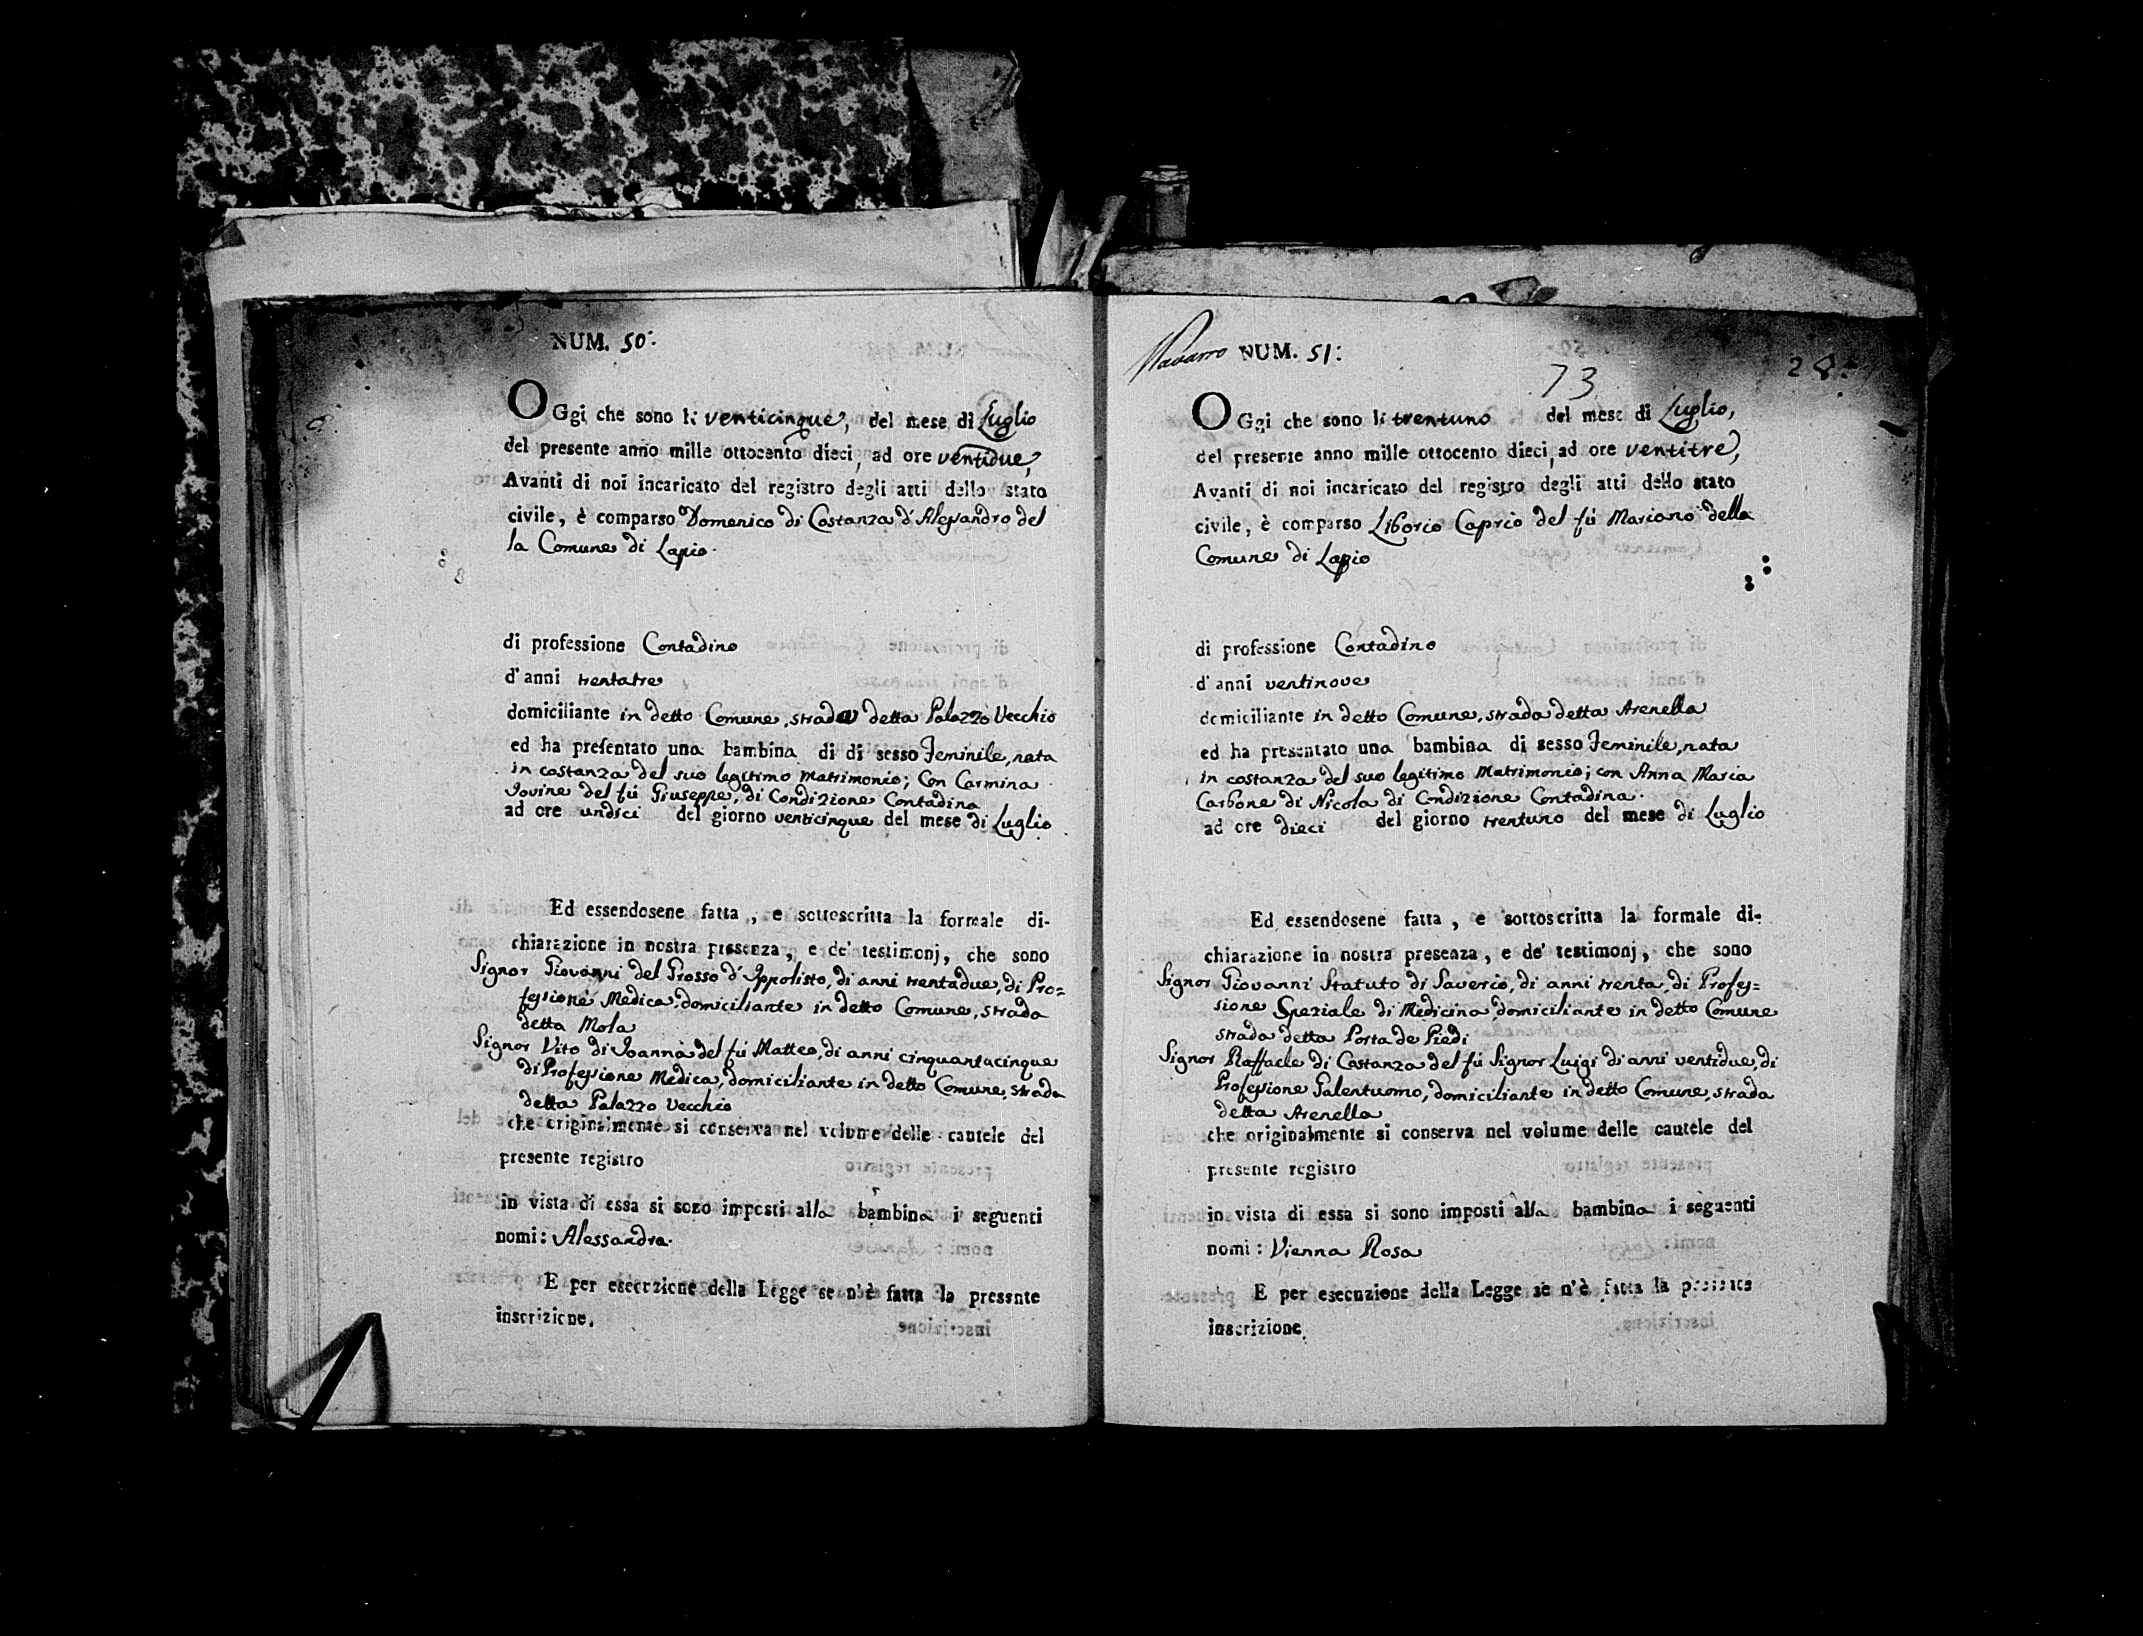 NUM. 50:
OGgi che sono li venticinque, del mese di Luglio
del presente anno mille ottocento dieci, ad ore ventidue,
Avanti di noi incaricato del registro degli atti dello stato
civile, è comparso Domenico di Costanza d'Alessandro del
la Comune di Lapio.
di professione Contadino
d'anni trentatre
domiciliante in detto Comune, strada detta Palazzo Vecchio
ed ha presentato una bambina di di sesso Feminile, nata
in costanza del suo legitimo Matrimonio; Con Carmina
Iovine del fù Giuseppe, di Condizione Contadina
ad ore undici del giorno venticinque del mese di Luglio
Ed essendosene fatta, e sottoscritta la formale di-
chiarazione in nostra presenza, e de' testimonj, che sono
Signor Giovanni del Grosso d'Ippolisto, di anni trentadue, di Pro=
fessione Medica, domiciliante in detto Comune, strada
detta Mola
Signor Vito di Ioanna del fù Matteo, di anni cinquantacinque
di Professione Medica, domiciliante in detto Comune, strada
detta Palazzo Vecchio
che originalmente si conserva nel volume delle cautele del
presente registro
in vista di essa si sono imposti alla bambina i seguenti
nomi: Alessandra.
E per esecuzione della Legge se n'è fatta la presente
inscrizione.
Navarro NUM. 51:
73
28:
OGgi che sono li trentuno del mese di Luglio,
del presente anno mille ottocento dieci, ad ore ventitre,
Avanti di noi incaricato del registro degli atti dello stato
civile, è comparso Liborio Caprio del fù Mariano della
Comune di Lapio
di professione Contadino
d'anni ventinove
domiciliante in detto Comune, strada detta Arenella
ed ha presentato una bambina di sesso Feminile, nata
in costanza del suo legitimo Matrimonio; con Anna Maria
Carbone di Nicola di Condizione Contadina.
ad ore dieci del giorno trentuno del mese di Luglio
Ed essendosene fatta, e sottoscritta la formale di-
chiarazione in nostra presenza, e de' testimonj, che sono
Signor Giovanni Statuto di Saverio, di anni trenta, di Profes=
sione Speziale di Medicina, domiciliante in detto Comune
strada detta Porta de Piedi
Signor Raffaele di Costanza del fù Signor Luigi di anni ventidue, di
Professione Galentuomo, domiciliante in detto Comune, strada
detta Arenella
che originalmente si conserva nel volume delle cautele del
presente registro
in vista di essa si sono imposti alla bambina i seguenti
nomi: Vienna Rosa
E per esecuzione della Legge se n'è fatta la presente
inscrizione.